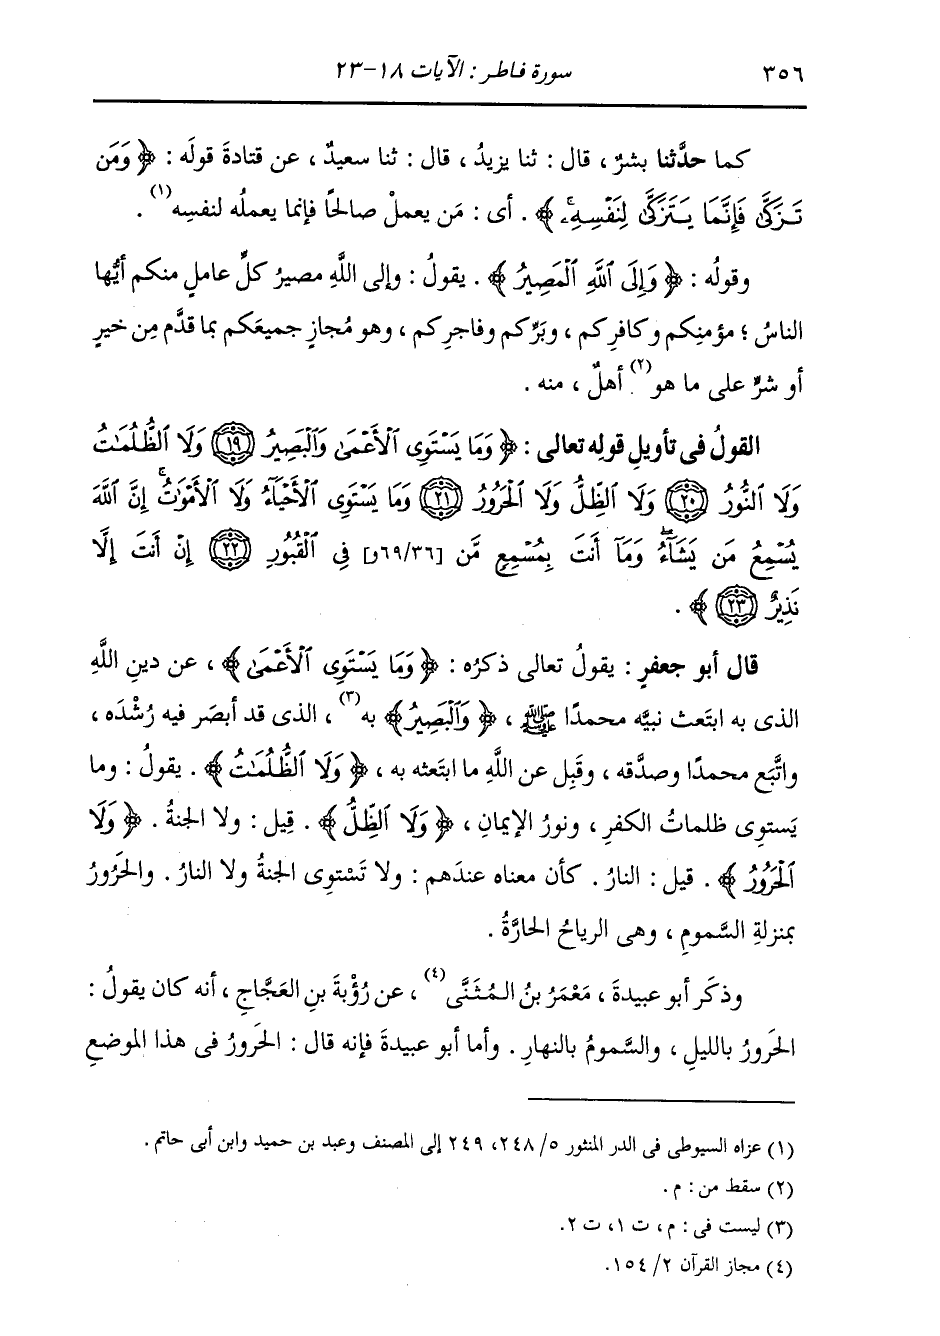 ٣٥٦ سورة فاطر : الآيات ١٨-٢٣
كما حدَّثنا بشرٌ ، قال : ثنا يزيدُ ، قال : ثنا سعيدٌ ، عن قتادةَ قولَه : ﴿ وَمَن
تَزَكَّىٰ فَإِنَّمَا يَتَزَكَّىٰ لِنَفْسِهِۦۚ ﴾ . أى : مَن يعملْ صالحًا فإنما يعملُه لنفسِه(١) .
وقولُه : ﴿ وَإِلَى ٱللَّهِ ٱلْمَصِيرُ ﴾ . يقولُ : وإلى اللَّهِ مصيرُ كلِّ عاملٍ منكم أيُّها
الناسُ ؛ مؤمنِكم وكافرِكم ، وبَرِّكم وفاجرِكم ، وهو مُجازٍ جميعَكم بما قدَّم مِن خيرٍ
أو شرٍّ على ما هو(٢) أهلٌ ، منه .
القولُ فى تأويلِ قولِه تعالى : ﴿ وَمَا يَسْتَوِى ٱلْأَعْمَىٰ وَٱلْبَصِيرُ ١٩ وَلَا ٱلظُّلُمَـٰتُ
وَلَا ٱلنُّورُ ٢٠ وَلَا ٱلظِّلُّ وَلَا ٱلْحَرُورُ ٢١ وَمَا يَسْتَوِى ٱلْأَحْيَآءُ وَلَا ٱلْأَمْوَٰتُۚ إِنَّ ٱللَّهَ
يُسْمِعُ مَن يَشَآءُۖ وَمَآ أَنتَ بِمُسْمِعٍ مَّن [٦٩/٣٦و] فِى ٱلْقُبُورِ ٢٢ إِنْ أَنتَ إِلَّا
نَذِيرٌ ٢٣ ﴾ .
قال أبو جعفرٍ : يقولُ تعالى ذكرُه : ﴿ وَمَا يَسْتَوِى ٱلْأَعْمَىٰ ﴾ ، عن دينِ اللَّهِ
الذى به ابتَعث نبيَّه محمدًا ﷺ ، ﴿ وَٱلْبَصِيرُ ﴾ به(٣) ، الذى قد أبصَر فيه رُشْدَه ،
واتَّبَع محمدًا وصدَّقه ، وقَبِل عن اللَّهِ ما ابتَعثه به ، ﴿ وَلَا ٱلظُّلُمَـٰتُ ﴾ . يقولُ : وما
يَستوِى ظلماتُ الكفرِ ، ونورُ الإيمانِ ، ﴿ وَلَا ٱلظِّلُّ ﴾ . قِيل : ولا الجنةُ . ﴿ وَلَا
ٱلْحَرُورُ ﴾ . قيل : النارُ . كأن معناه عندَهم : ولا تَسْتوِى الجنةُ ولا النارُ . والحَرُورُ
بمنزلةِ السَّمومِ ، وهى الرياحُ الحارَّةُ .
وذكَر أبو عبيدةَ ، مَعْمَرُ بنُ المُثَنَّى(٤) ، عن رُؤْبةَ بنِ العَجَّاجِ ، أنه كان يقولُ :
الحَرورُ بالليلِ ، والسَّمومُ بالنهارِ . وأما أبو عبيدةَ فإنه قال : الحَرورُ فى هذا الموضعِ
(١) عزاه السيوطى فى الدر المنثور ٥/ ٢٤٨، ٢٤٩ إلى المصنف وعبد بن حميد وابن أبى حاتم .
(٢) سقط من : م .
(٣) ليست فى : م ، ت ١، ت ٢.
(٤) مجاز القرآن ٢/ ١٥٤.